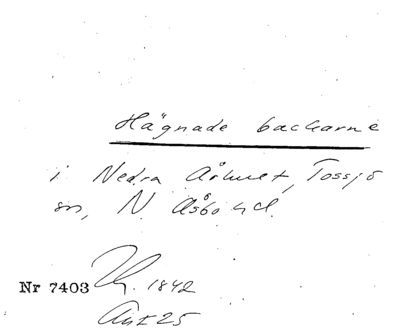 Hägnade backarne
i Nedra Århult, Tossjö
sn, N Åsbo hd.
Nr 7403 1842
Akt 25